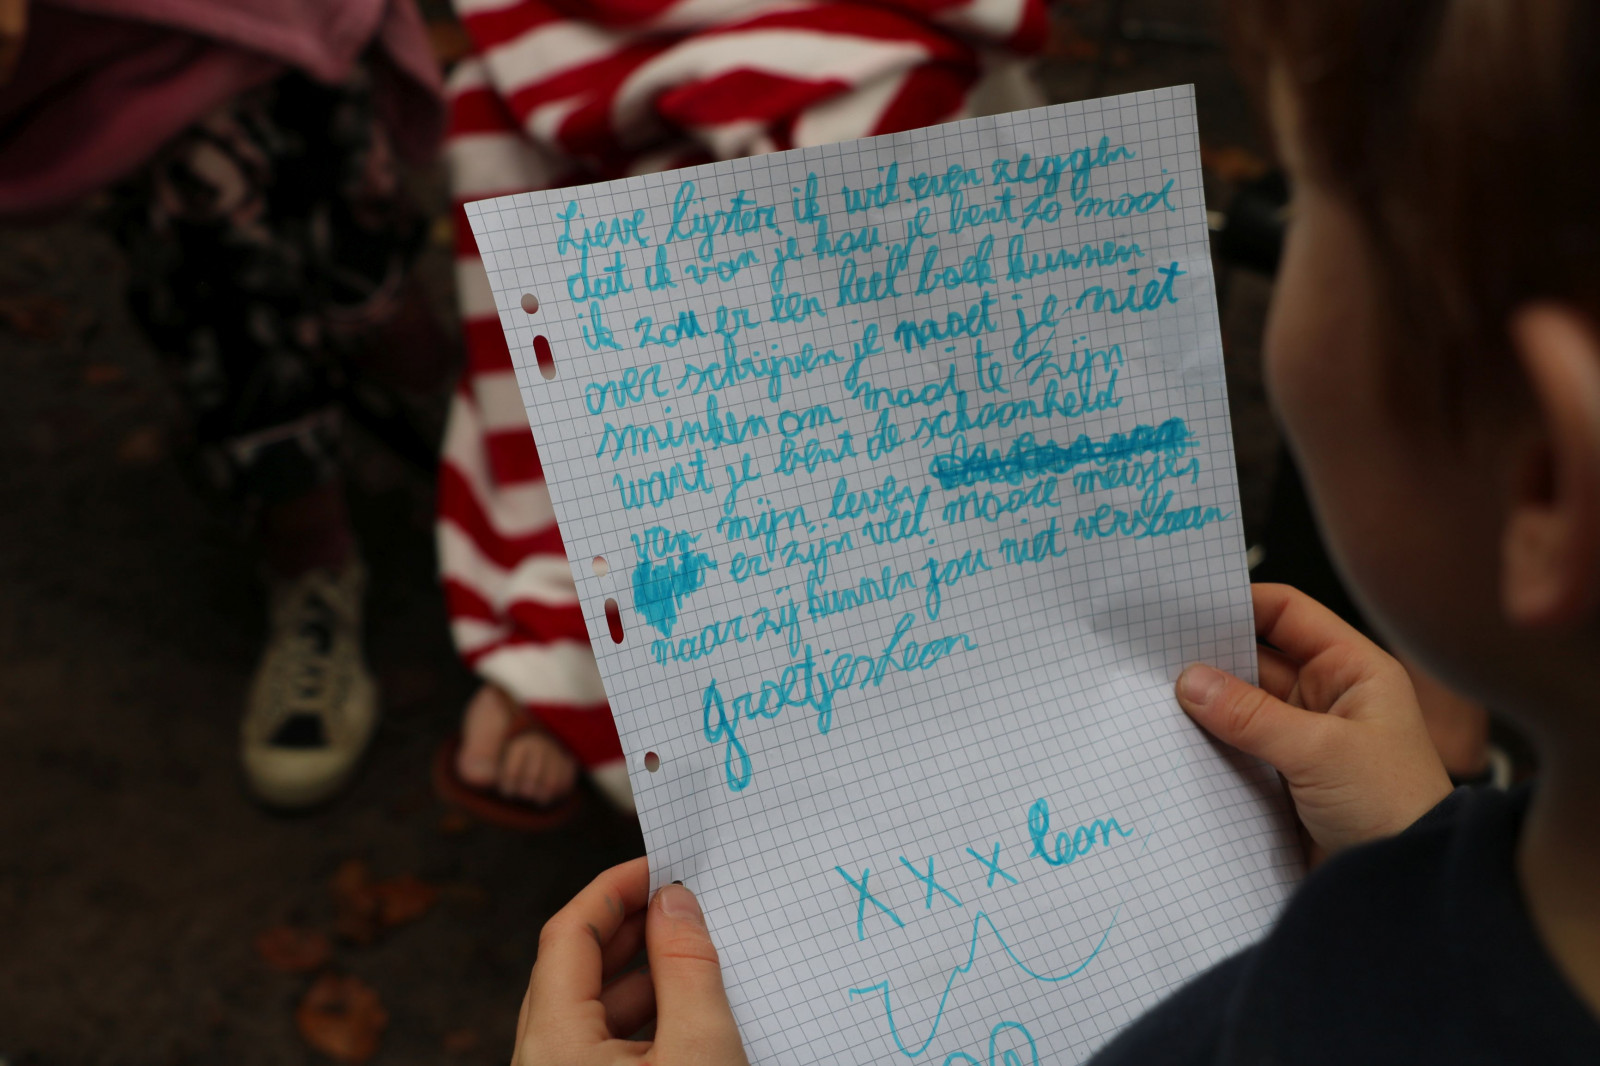 Lieve lijster ik wil even zeggen
dat ik van je hou je bent zo mooi
ik zou er een heel boek kunnen
over schrijven je moet je niet
sminken om mooi te zijn
want je bent de schoonheid
van mijn leven
er zijn veel mooie meisjes
maar zij kunnen jou niet verslaan
Groetjes Leon
XXX leon